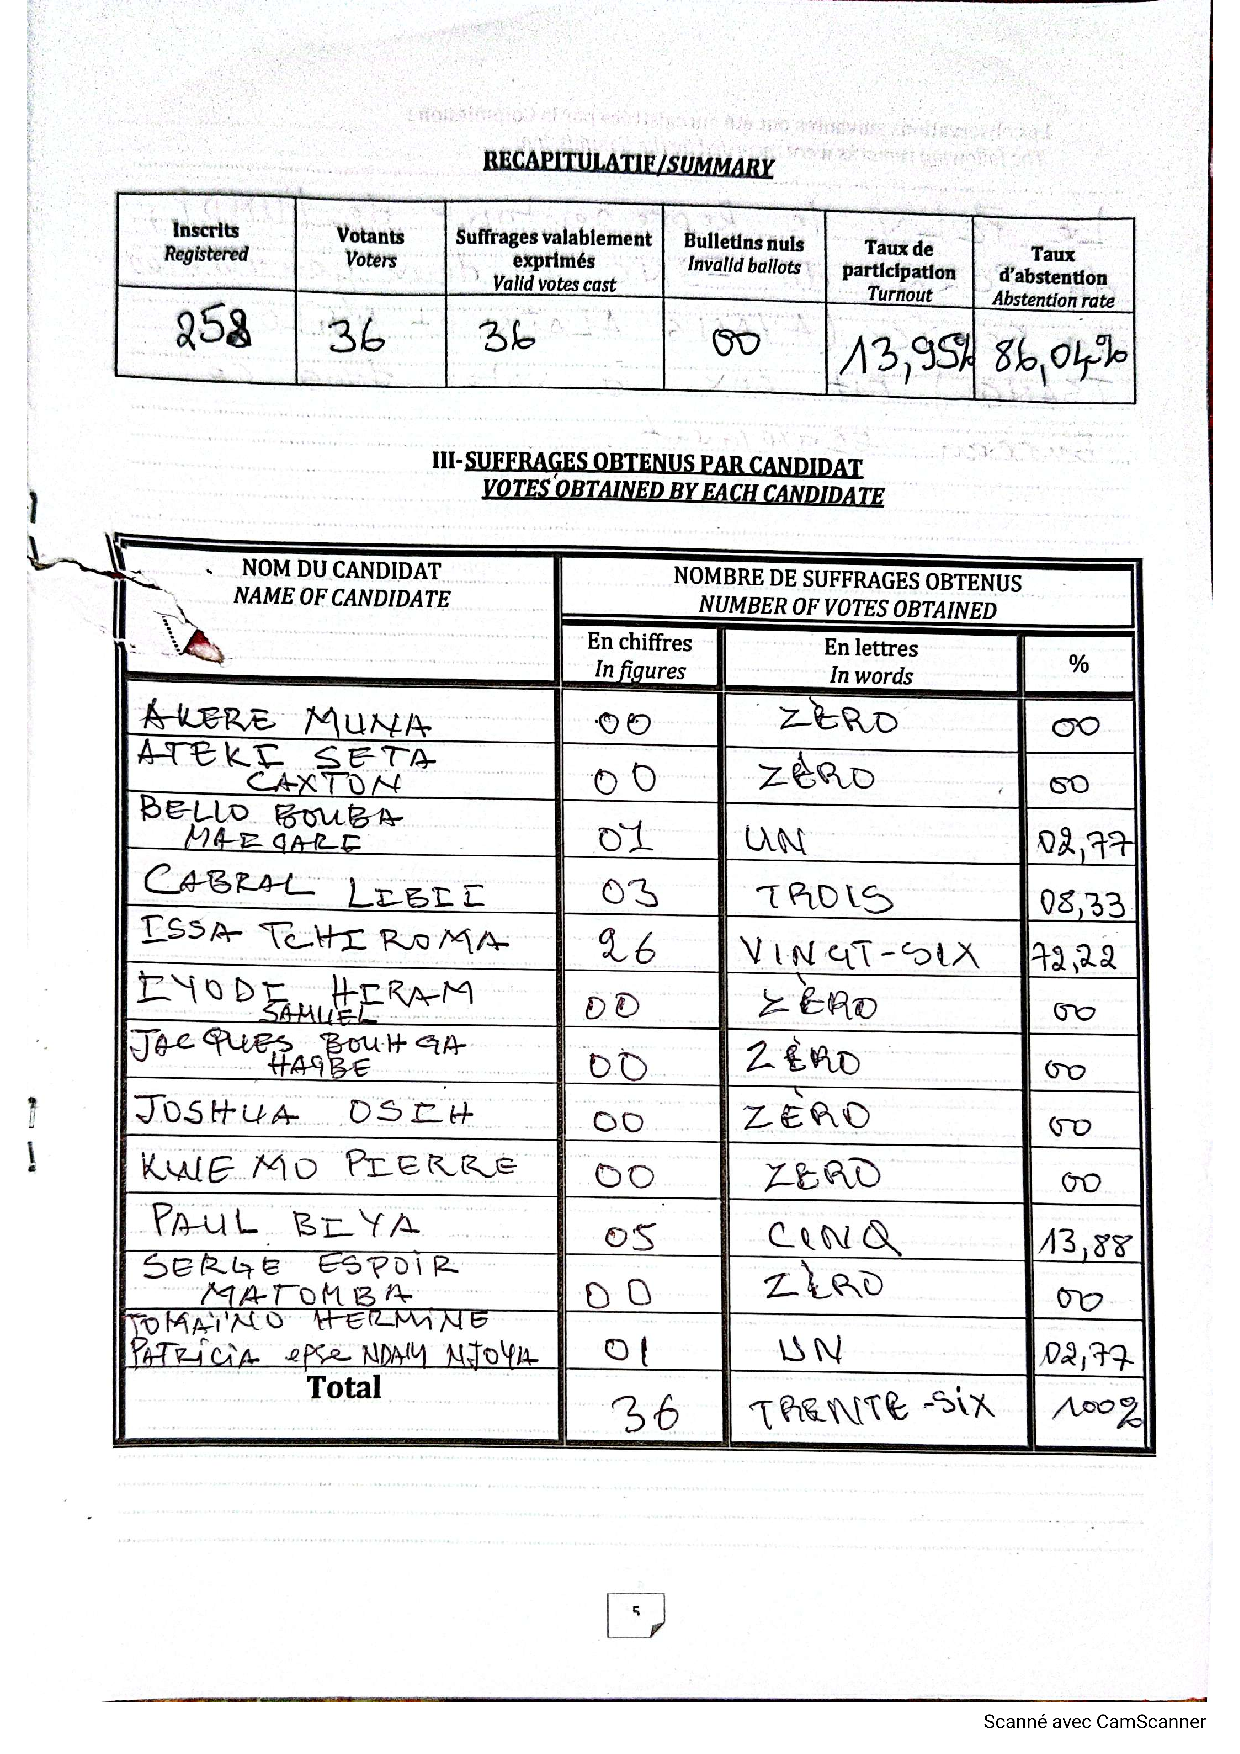 RECAPITULATIF/SUMMARY
Inscrits
Registered
Votants
Voters
Suffrages valablement
exprimés
Valid votes cast
Bulletins nuls
Invalid ballots
Taux de
participation
Turnout
Taux
d'abstention
Abstention rate
258
36
36
00
13,95%
86,04%
III-SUFFRAGES OBTENUS PAR CANDIDAT
VOTES OBTAINED BY EACH CANDIDATE
NOM DU CANDIDAT
NAME OF CANDIDATE
NOMBRE DE SUFFRAGES OBTENUS
NUMBER OF VOTES OBTAINED
En chiffres
In figures
En lettres
In words
%
AKERE MUNA 00 ZÈRO 00
ATEKI SETA
CAXTON 00 ZÈRO 00
BELLO BOUBA
MAIGARE 01 UN 02,77
CABRAL LIBII 03 TROIS 08,33
ISSA TCHIROMA 26 VINGT-SIX 72,22
IYODI HIRAM
SAMUEL 00 ZÈRO 00
JACQUES BOUHGA
HAGBE 00 ZÈRO 00
JOSHUA OSIH 00 ZÈRO 00
KWEMO PIERRE 00 ZERO 00
PAUL BIYA 05 CINQ 13,88
SERGE ESPOIR
MATOMBA 00 ZÈRO 00
TOMAÏNO HERMINE
PATRICIA epse NDAM NJOYA 01 UN 02,77
Total 36 TRENTE-SIX 100%
5
Scanné avec CamScanner